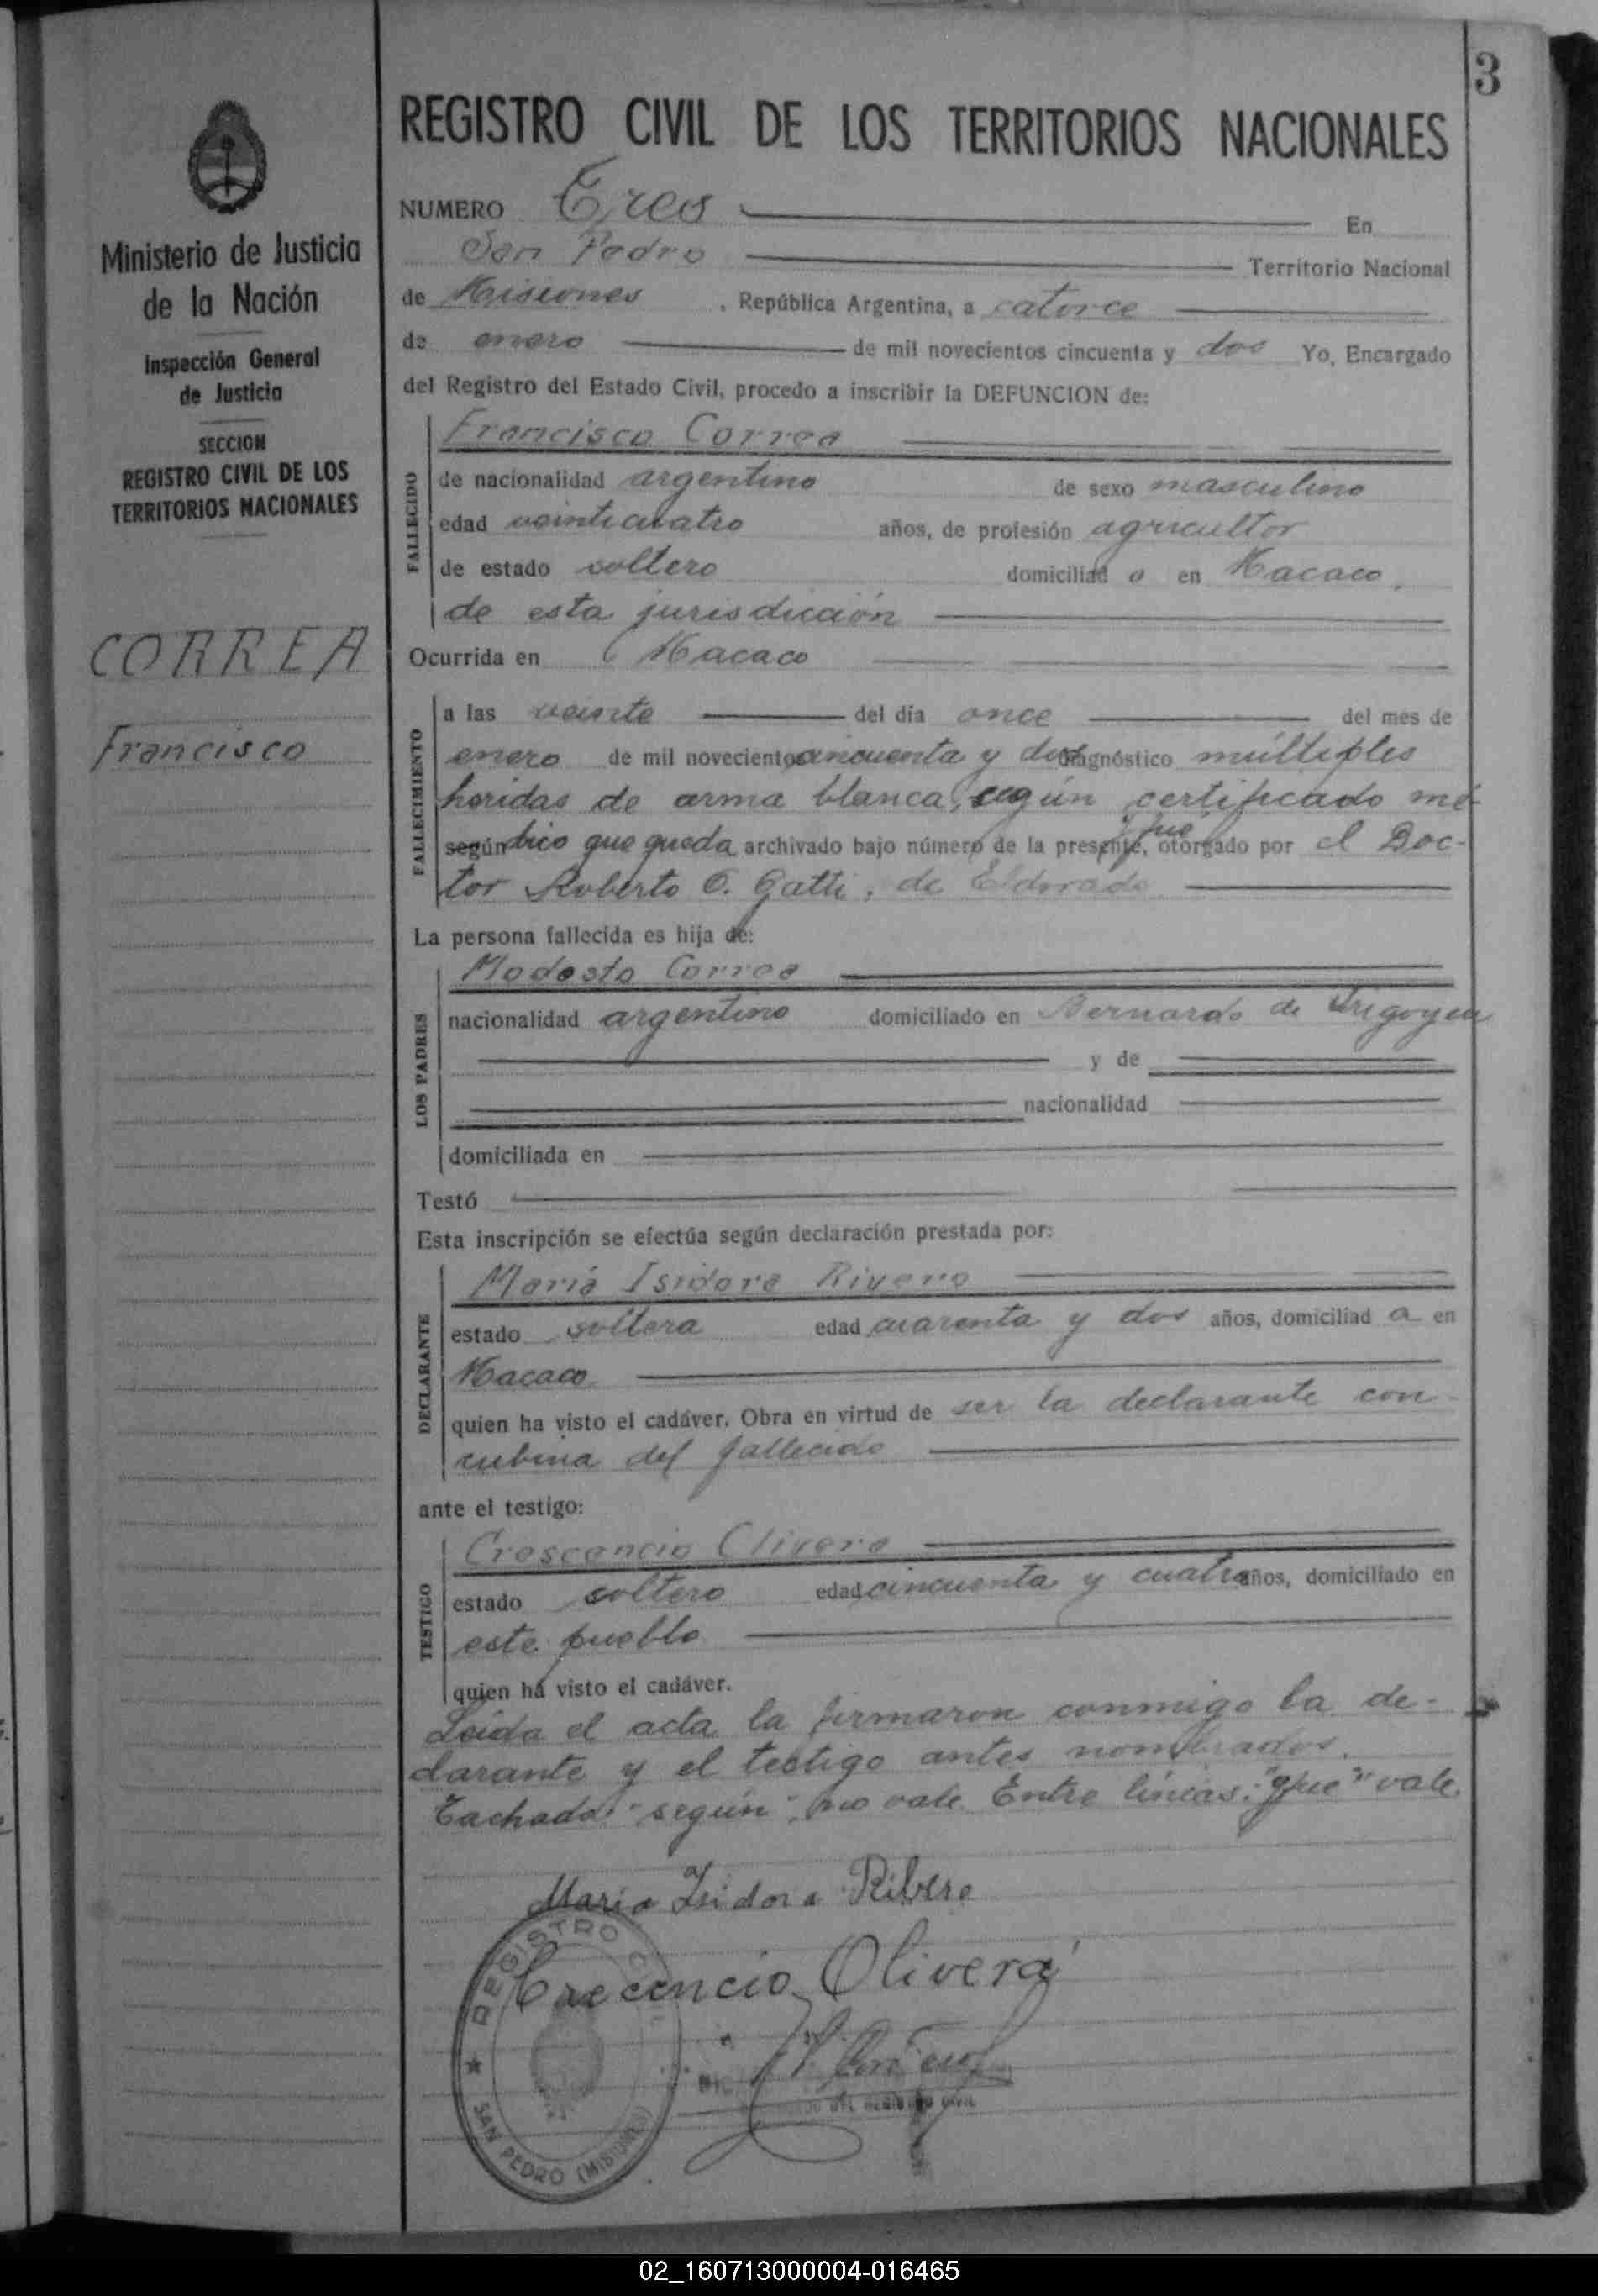 3
REGISTRO CIVIL DE LOS TERRITORIOS NACIONALES
Ministerio de Justicia
de la Nación
Inspección General
de Justicia
SECCION
REGISTRO CIVIL DE LOS
TERRITORIOS NACIONALES
CORREA
Francisco
NUMERO Tres En
San Pedro Territorio Nacional
de Misiones , República Argentina, a catorce
de enero de mil novecientos cincuenta y dos Yo, Encargado
del Registro del Estado Civil, procedo a inscribir la DEFUNCION de:
FALLECIDO
Francisco Correa
de nacionalidad argentino de sexo masculino
edad veinticuatro años, de profesión agricultor
de estado soltero domiciliad o en Macaco,
de esta jurisdicción
Ocurrida en Macaco
FALLECIMIENTO
a las veinte del día once del mes de
enero de mil novecientos cincuenta y dos diagnóstico múltiples
heridas de arma blanca, según certificado mé-
según dico que queda archivado bajo número de la presente, y fue otorgado por el Doc-
tor Roberto O. Gatti, de Eldorado
La persona fallecida es hija de:
LOS PADRES
Modesto Correa
nacionalidad argentino domiciliado en Bernardo de Irigoyen
y de
nacionalidad
domiciliada en
Testó
Esta inscripción se efectúa según declaración prestada por:
DECLARANTE
María Isidora Rivero
estado soltera edad cuarenta y dos años, domiciliad a en
Macaco
quien ha visto el cadáver. Obra en virtud de ser la declarante con-
cubina del fallecido
ante el testigo:
TESTIGO
Crescencio Olivera
estado soltero edad cincuenta y cuatro años, domiciliado en
este pueblo
quien ha visto el cadáver.
Leída el acta la firmaron conmigo la de-
clarante y el testigo antes nombrados.
Tachado: "según" no vale. Entre líneas: "y fue" vale.
Maria Isidora Ribero
Crecencio Olivera
REGISTRO
DEL REGISTRO CIVIL
SAN PEDRO (MISIONES)
02_160713000004-016465